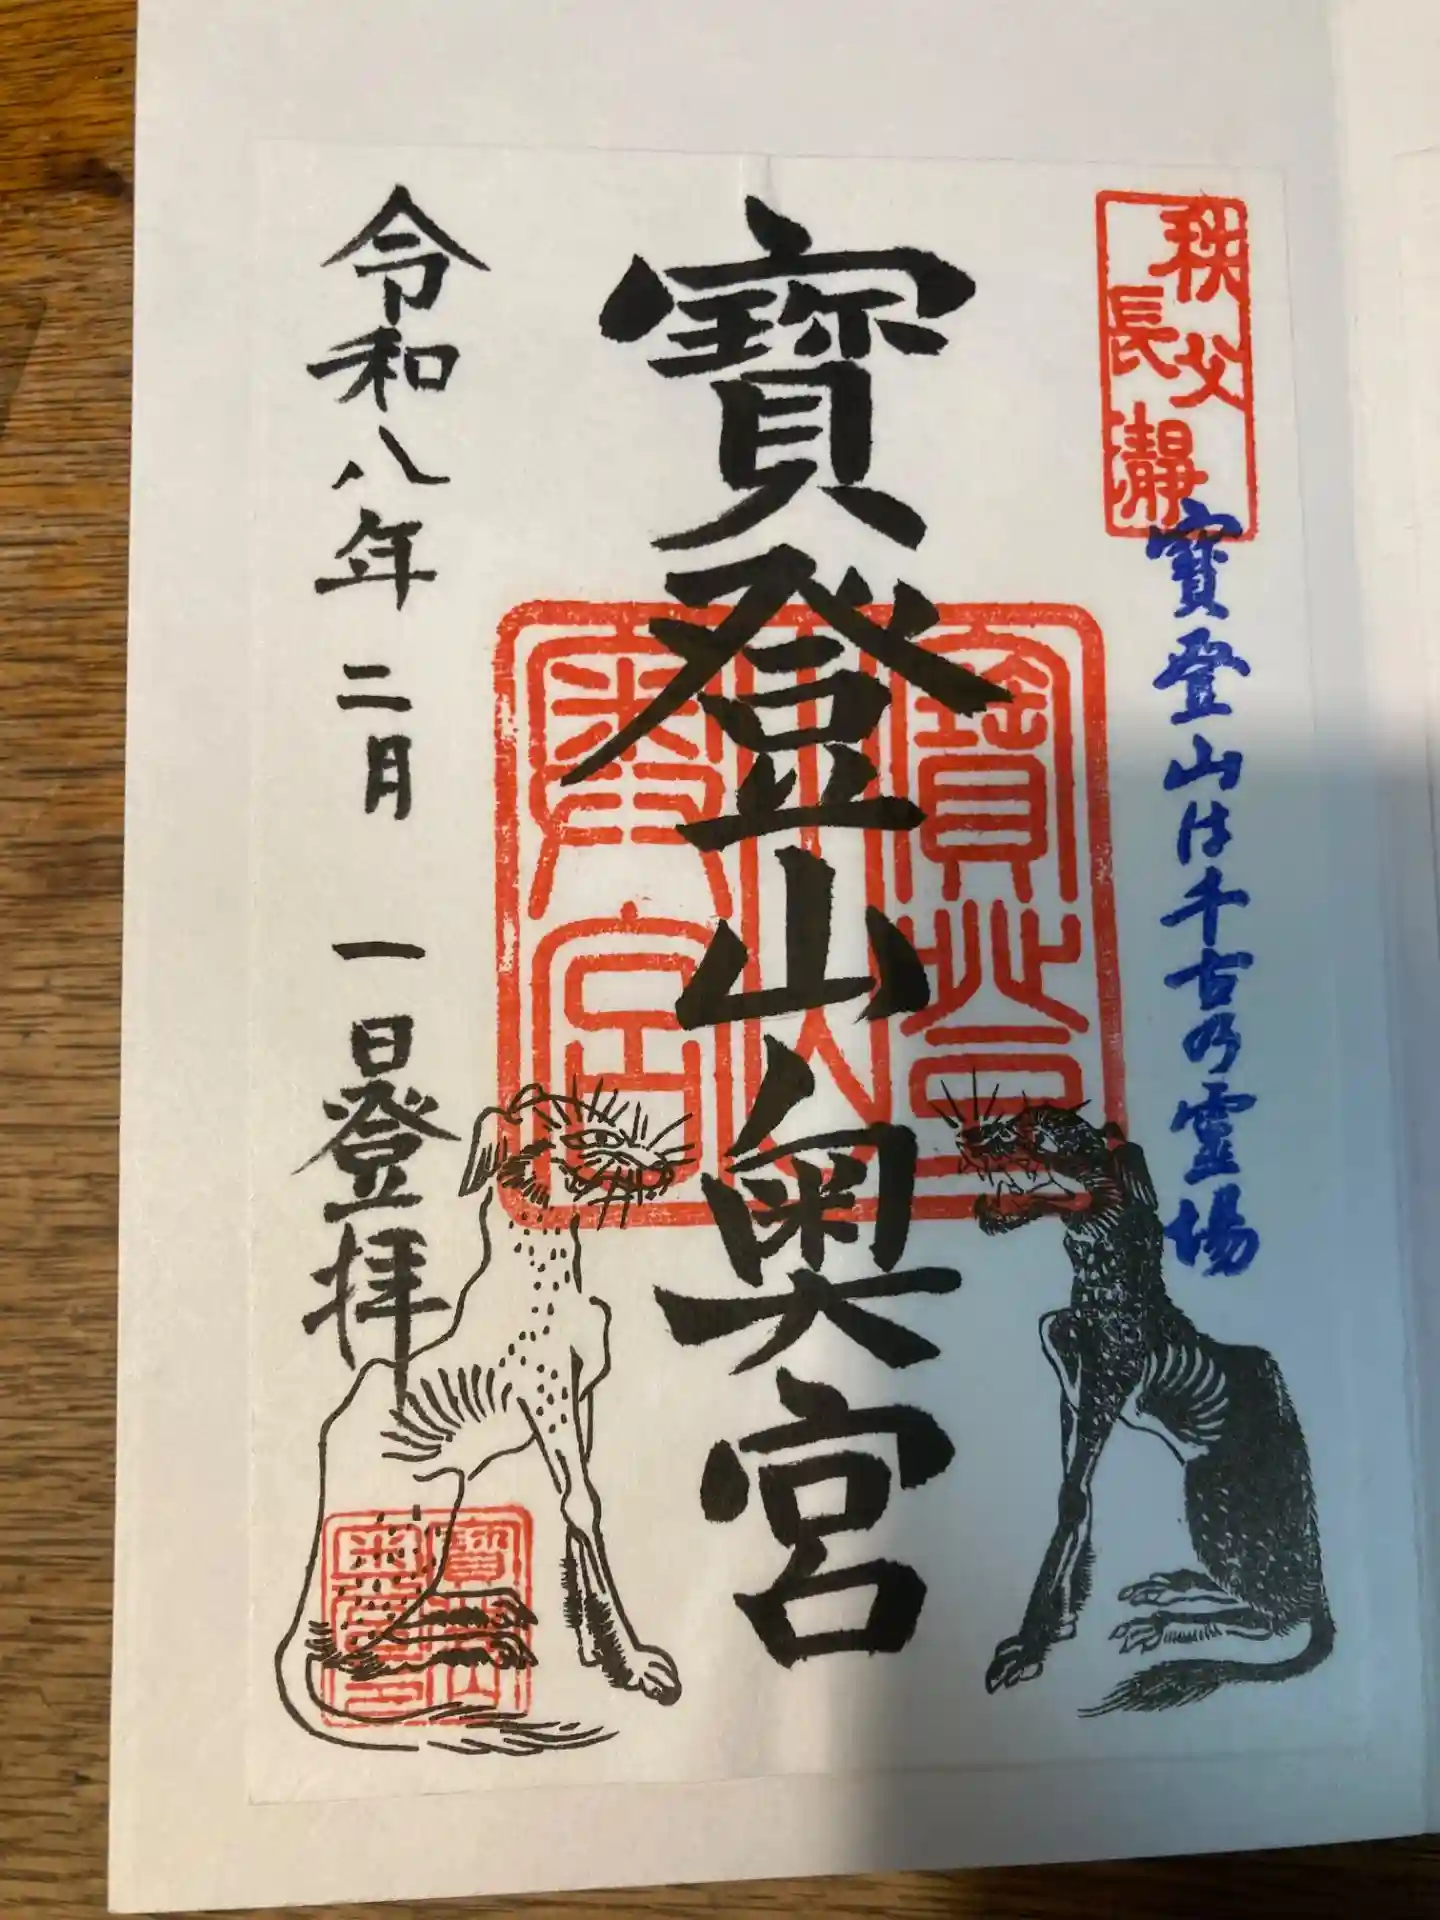 秩父
長瀞
寶登山は千古乃霊場
寶登山奥宮
寶登
山
奥宮
令和八年二月一日登拝